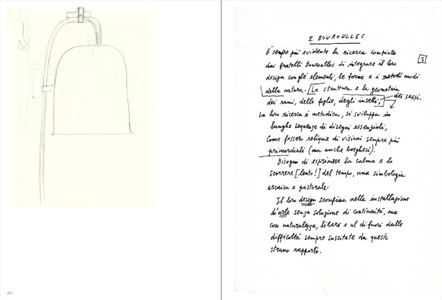 2 BOUROULLEC
È sempre più evidente la ricerca compiuta
dai fratelli Bouroullec di integrare il loro
design con gli elementi, le forme e i metodi
della natura. La struttura e la geometria
dei rami, delle foglie, degli insetti, dei sassi.
La loro ricerca è metodica, si sviluppa in
lunghe sequenze di disegni essenziali,
come fossero reliquie di visioni sempre più
primordiali (ma anche borghesi).
Disegno di espressione la calma e lo
scorrere [lento!] del tempo, una simbologia
arcaica e pastorale.
Il loro design sconfina nella installazione
d'arte senza soluzione di continuità, ma
con naturalezza, libera e al di fuori dalle
difficoltà sempre suscitate da questo
strano rapporto.